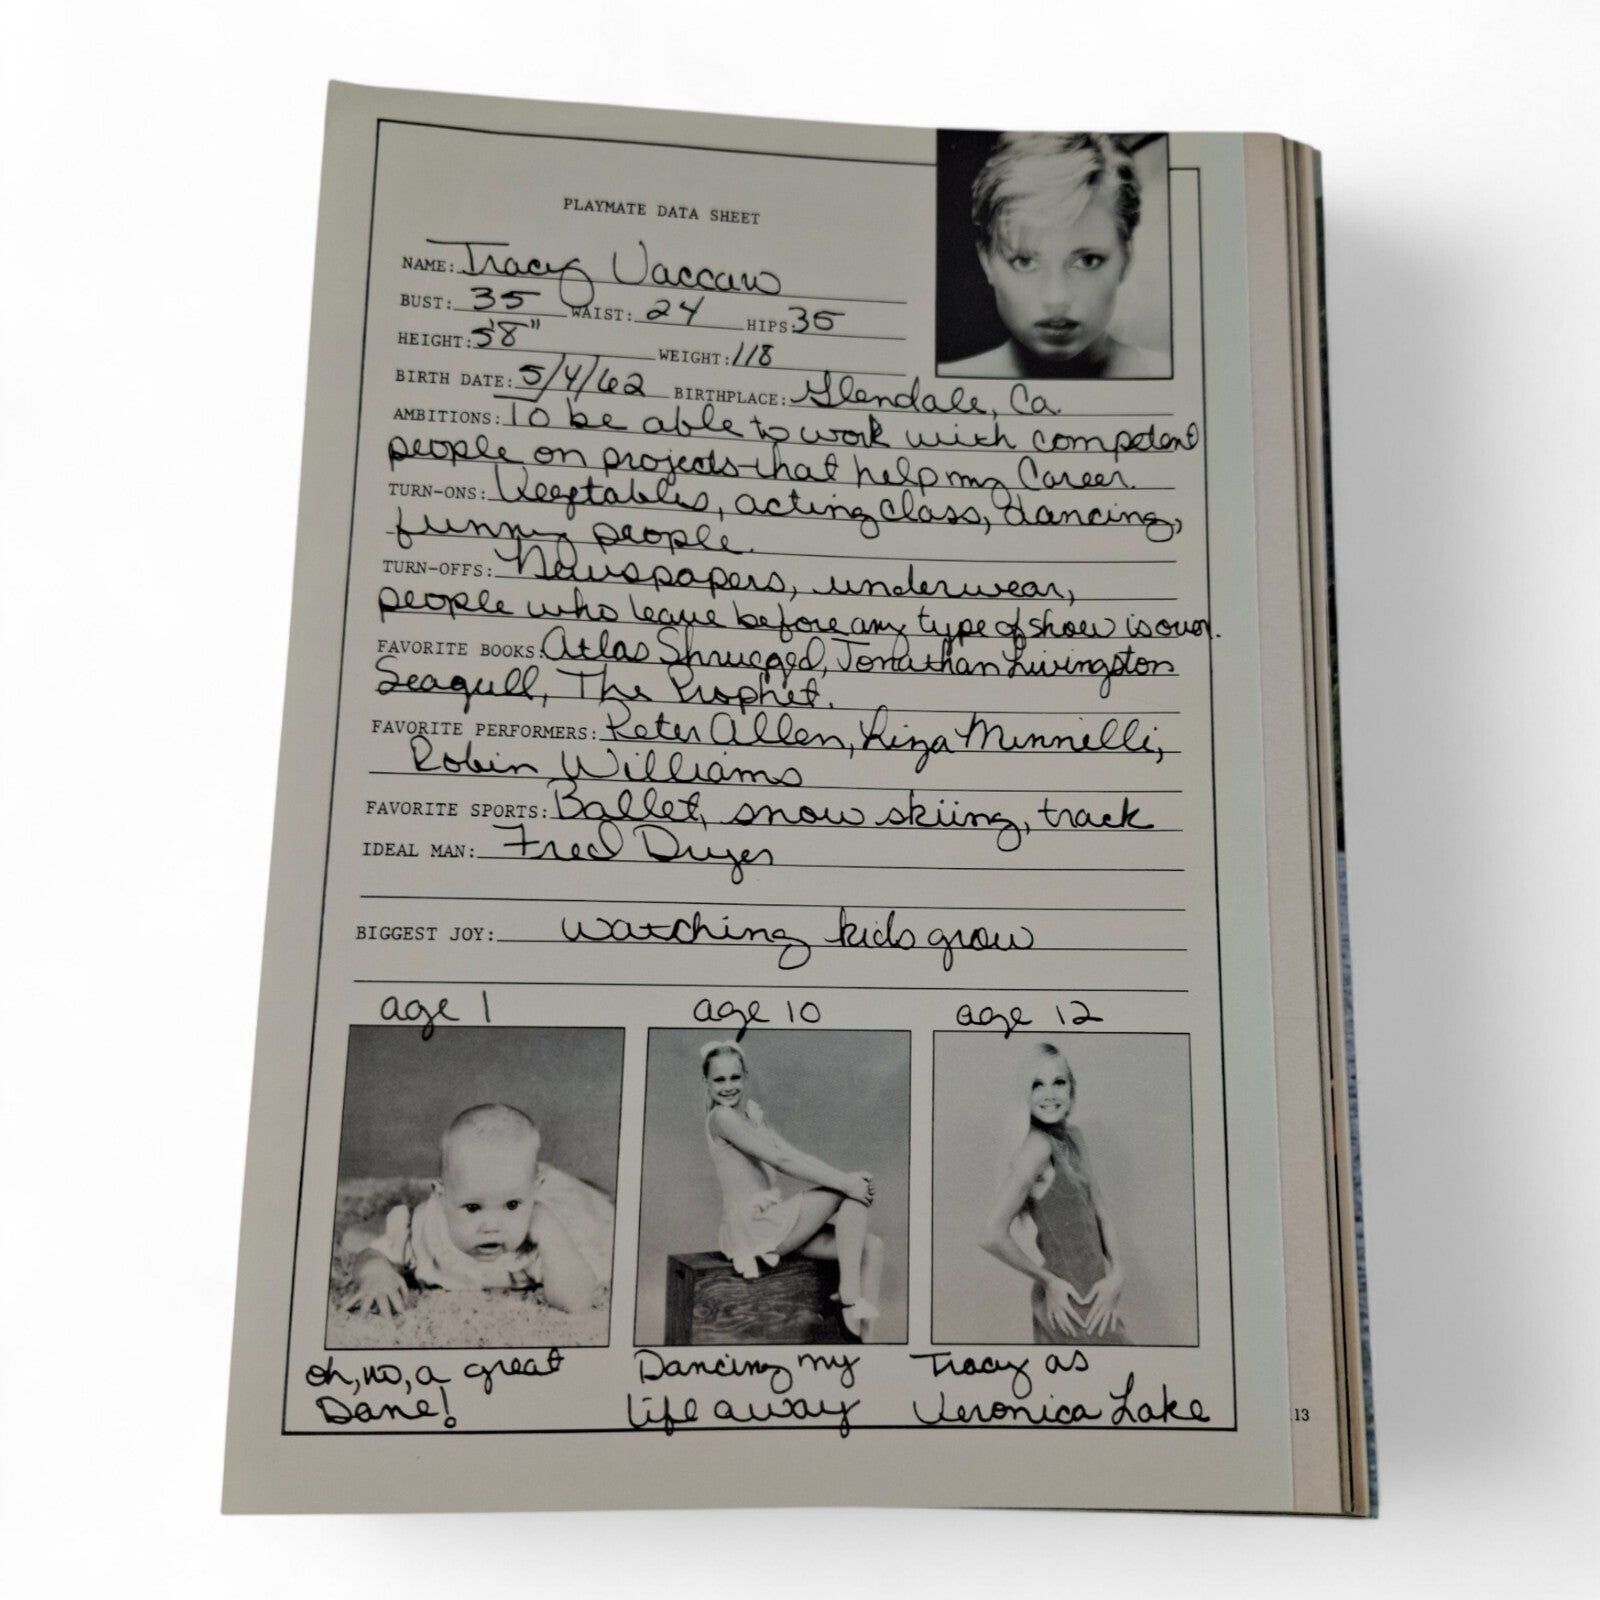 PLAYMATE DATA SHEET
NAME: Tracy Vaccaro
BUST: 35 WAIST: 24 HIPS: 35
HEIGHT: 5'8" WEIGHT: 118
BIRTH DATE: 5/4/62 BIRTHPLACE: Glendale, Ca.
AMBITIONS: To be able to work with competent
people on projects that help my Career.
TURN-ONS: Vegetables, acting class, dancing,
funny people.
TURN-OFFS: Newspapers, underwear,
people who leave before any type of show is over.
FAVORITE BOOKS: Atlas Shrugged, Jonathan Livingston
Seagull, The Prophet.
FAVORITE PERFORMERS: Peter Allen, Liza Minnelli,
Robin Williams
FAVORITE SPORTS: Ballet, snow skiing, track
IDEAL MAN: Fred Dryer
BIGGEST JOY: watching kids grow
age 1 age 10 age 12
oh, no, a great
Dane!
Dancing my
life away
Tracy as
Veronica Lake
13